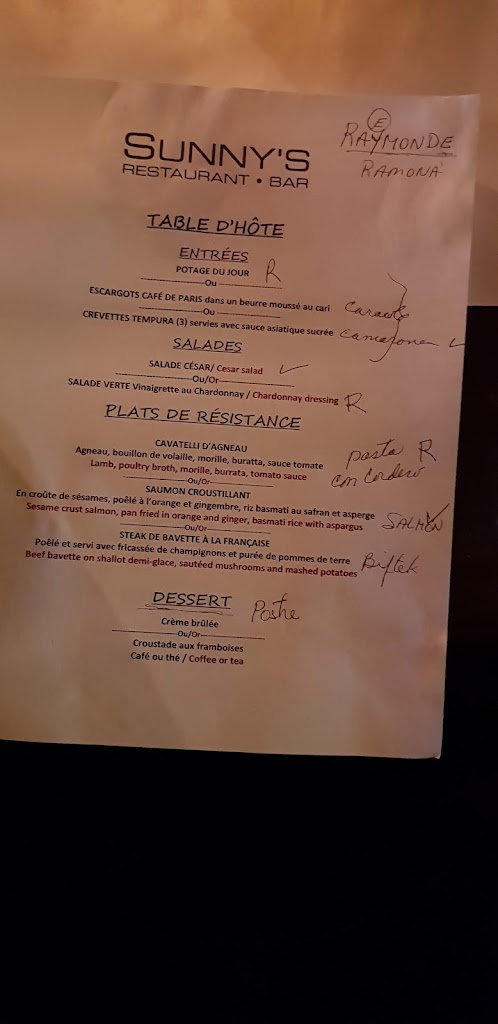 SUNNY'S
RESTAURANT • BAR
E
RAYMONDE
RAMONA
TABLE D'HÔTE
ENTRÉES
POTAGE DU JOUR R
Ou
ESCARGOTS CAFÉ DE PARIS dans un beurre moussé au cari
Ou
CREVETTES TEMPURA (3) servies avec sauce asiatique sucrée
SALADES
SALADE CÉSAR/ Cesar salad ✓
Ou/Or
SALADE VERTE Vinaigrette au Chardonnay / Chardonnay dressing R
PLATS DE RÉSISTANCE
CAVATELLI D'AGNEAU
Agneau, bouillon de volaille, morille, buratta, sauce tomate pasta R
Lamb, poultry broth, morille, burrata, tomato sauce con cordero
Ou/Or
SAUMON CROUSTILLANT
En croûte de sésames, poêlé à l'orange et gingembre, riz basmati au safran et asperge
Sesame crust salmon, pan fried in orange and ginger, basmati rice with aspargus SALMON
Ou/Or
STEAK DE BAVETTE À LA FRANÇAISE
Poêlé et servi avec fricassée de champignons et purée de pommes de terre
Beef bavette on shallot demi-glace, sautéed mushrooms and mashed potatoes Biftek
DESSERT Postre
Crème brûlée
Ou/Or
Croustade aux framboises
Café ou thé / Coffee or tea